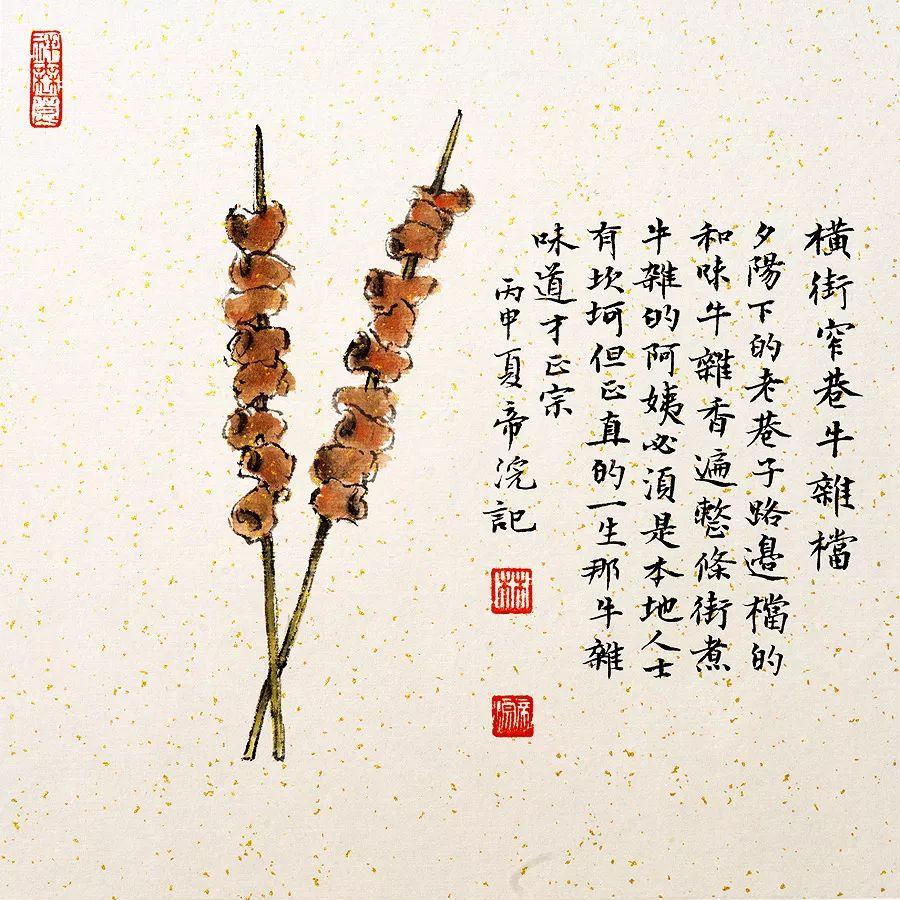 橫街窄巷牛雜檔
夕陽下的老巷子路邊檔的
和味牛雜香遍整條街煮
牛雜的阿姨必須是本地人士
有坎坷但正直的一生那牛雜
味道才正宗
丙申夏帝浣記
林
帝浣